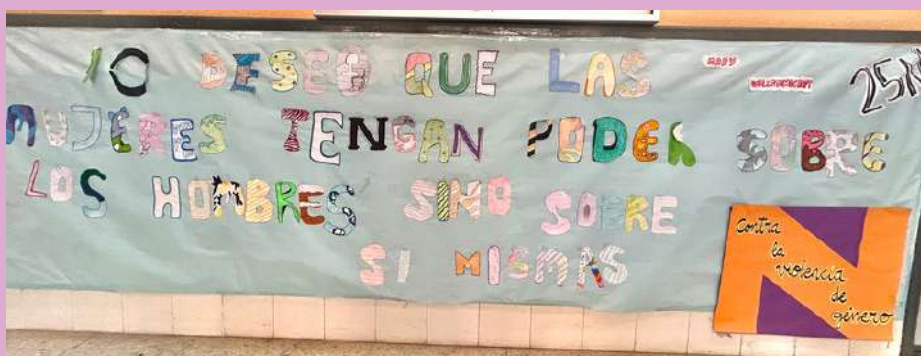 DESEO QUE LAS
25N
MUJERES TENGAN PODER SOBRE
LOS HOMBRES SINO SOBRE
SI MISMAS
Contra
la
violencia
de
género
N